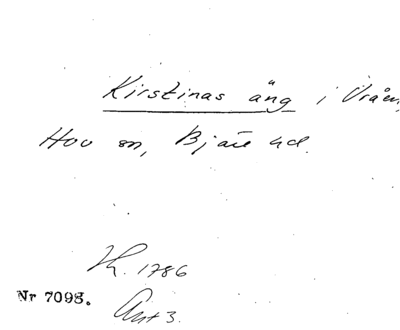 Kirstinas äng i Vråen,
Hov sn, Bjäre hd.
Kh. 1786
Nr 7098.
Akt 3.